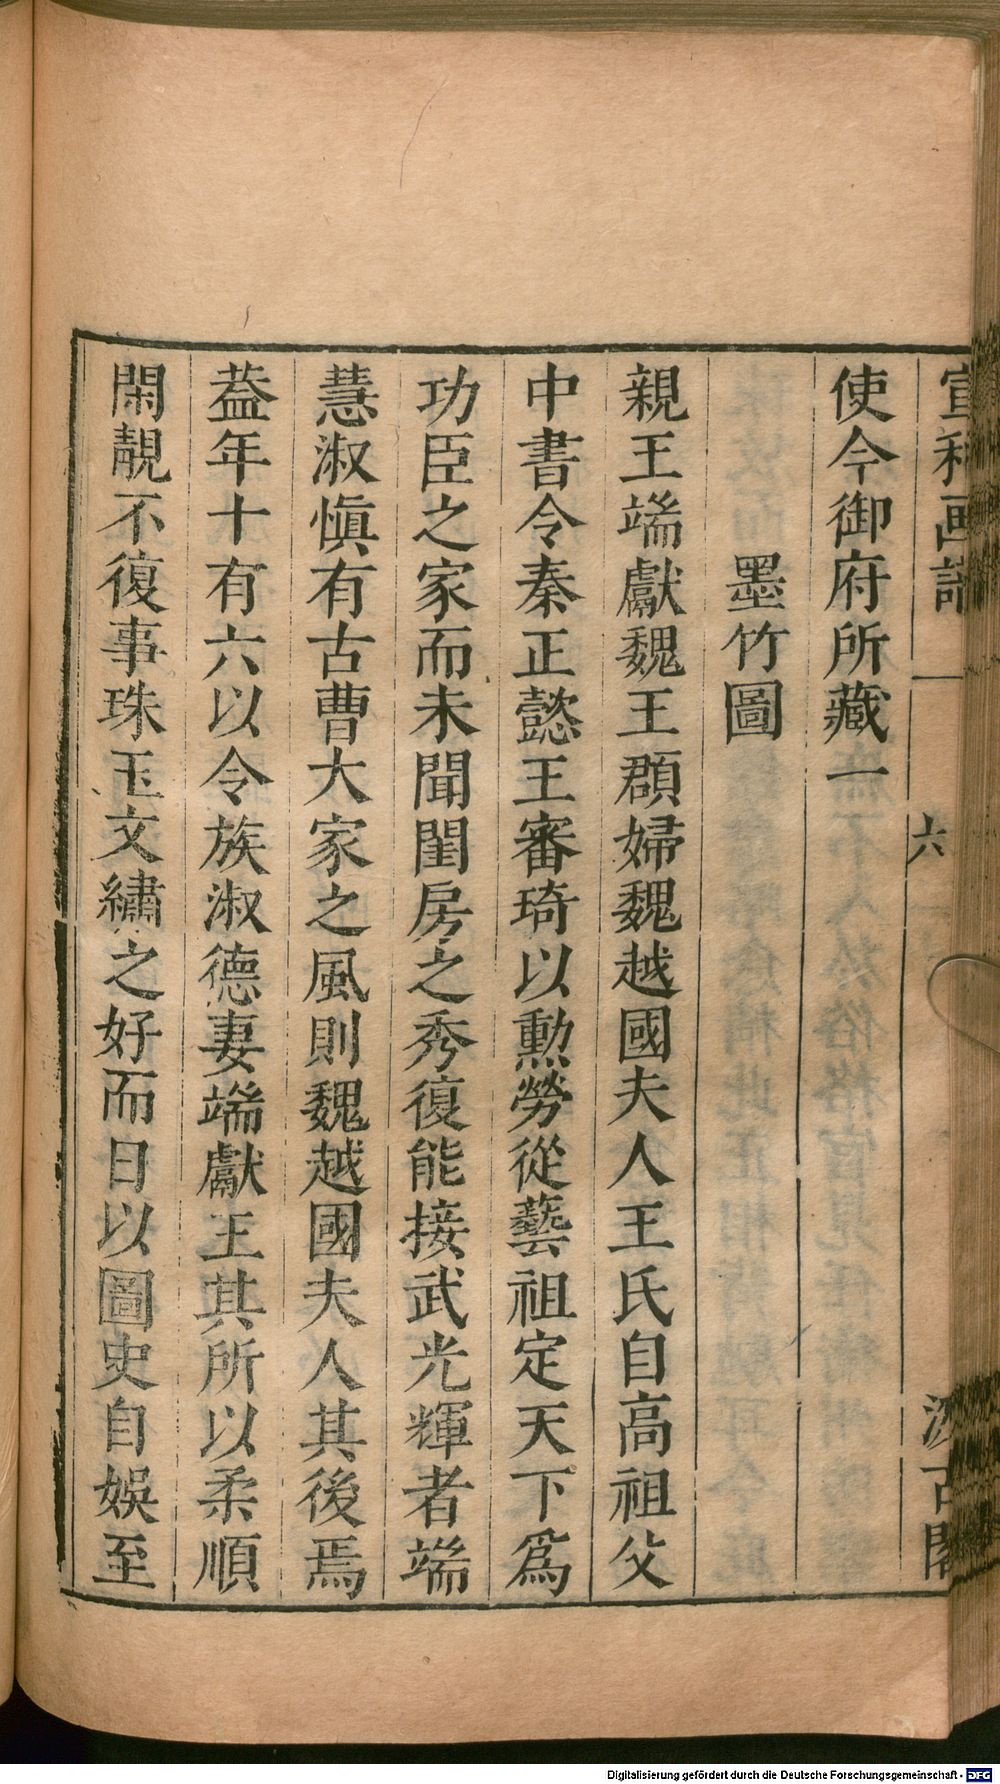 宣和画譜 一 六 汲古閣
使今御府所藏一
墨竹圖
親王端獻魏王頵婦魏越國夫人王氏自高祖父
中書令秦正懿王審琦以勲勞從藝祖定天下爲
功臣之家而未聞閨房之秀復能接武光輝者端
慧淑愼有古曹大家之風則魏越國夫人其後焉
葢年十有六以令族淑德妻端獻王其所以柔順
閑靚不復事珠玉文繡之好而日以圖史自娛至
Digitalisierung gefördert durch die Deutsche Forschungsgemeinschaft - DFG